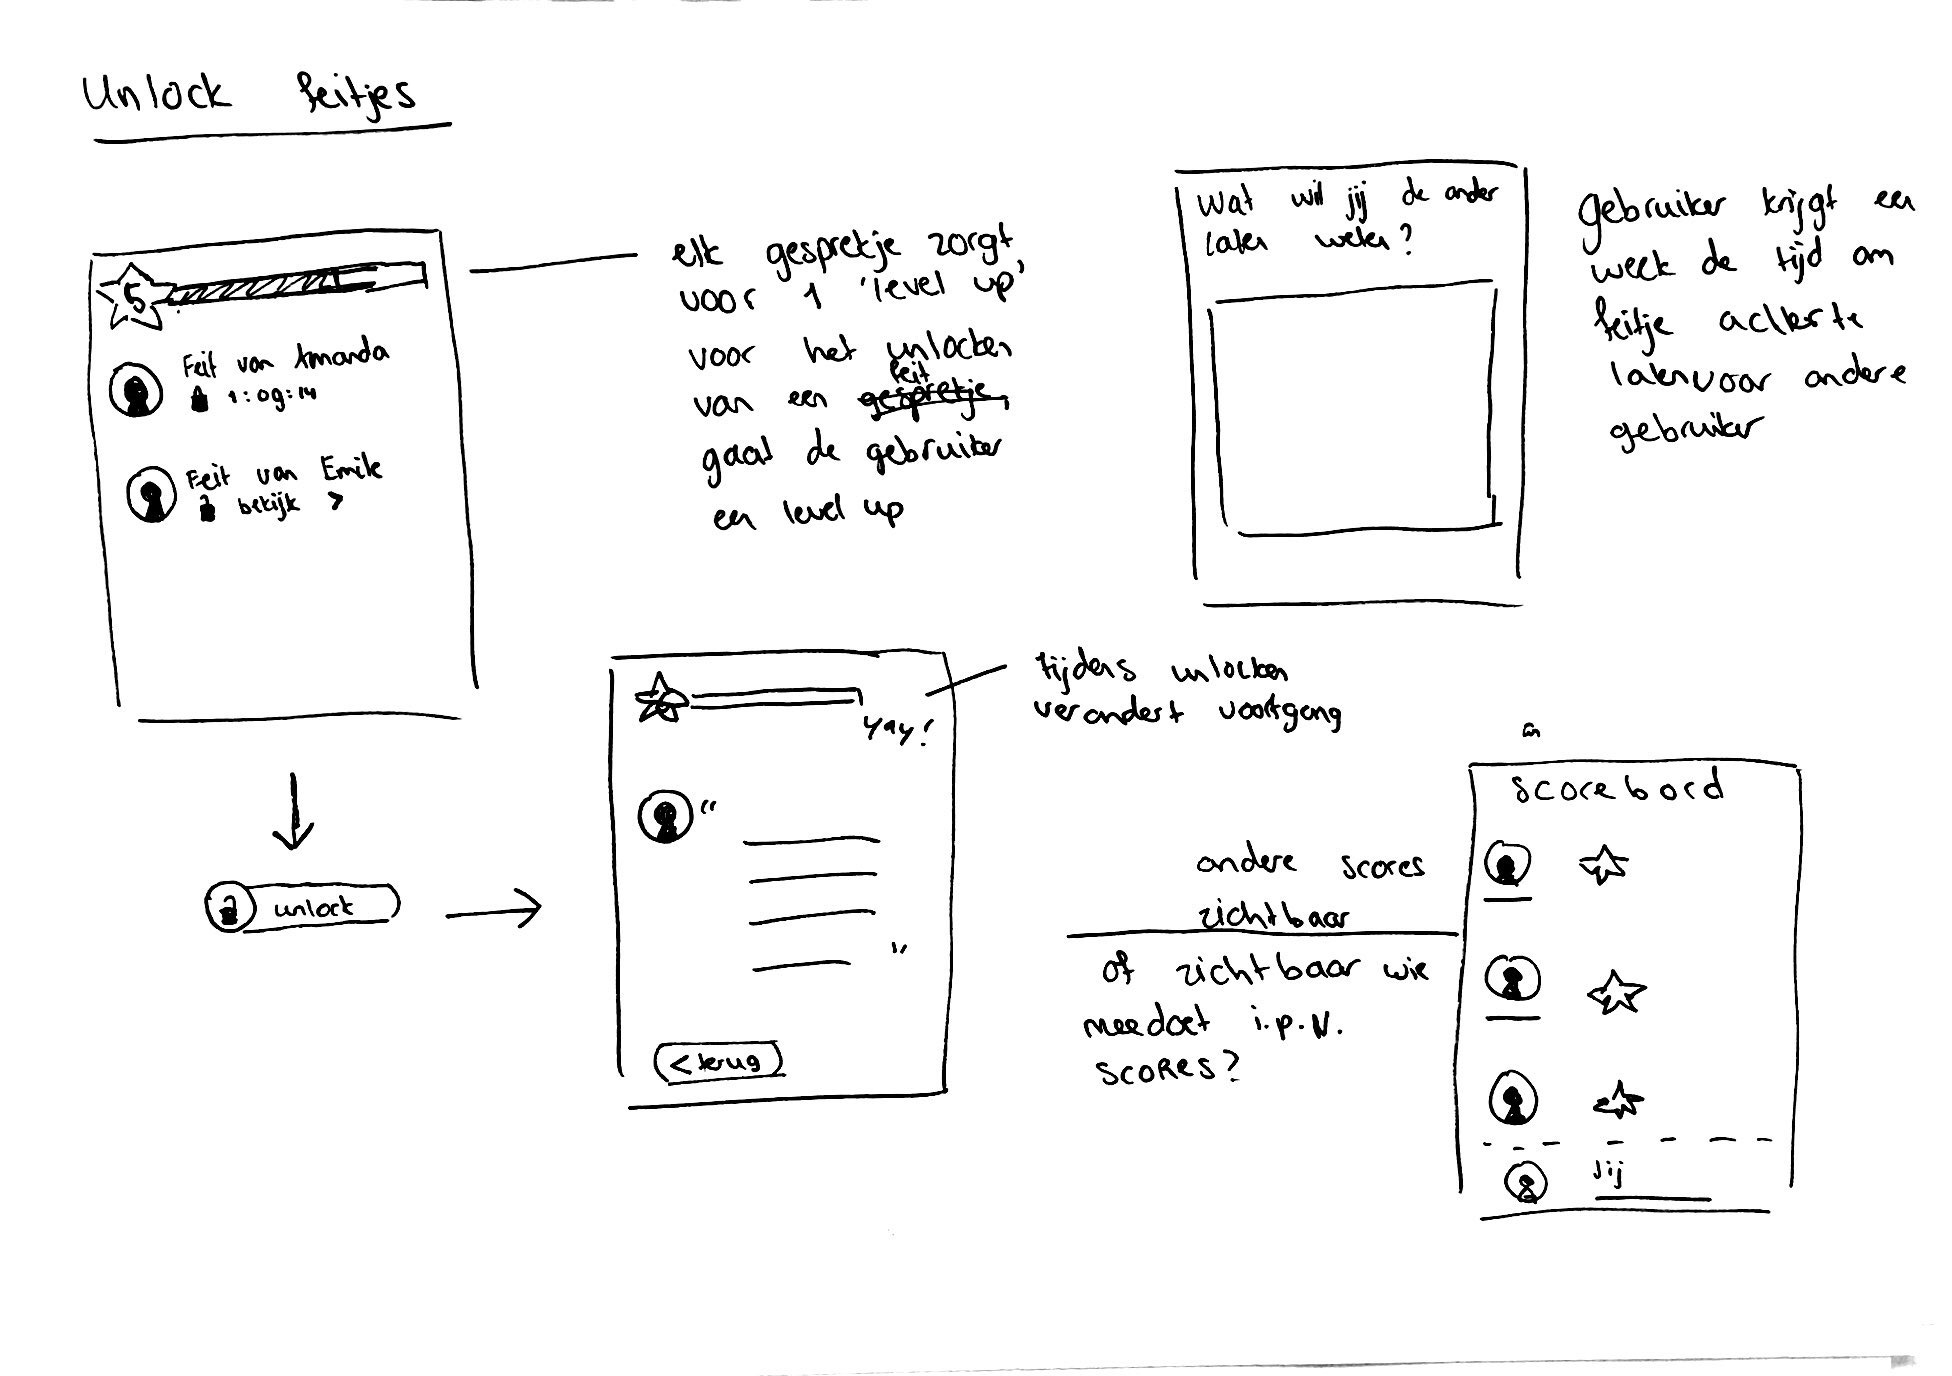 Unlock feitjes
5
Feit van Amanda
1:09:14
Feit van Emile
bekijk >
elk gesprekje zorgt
voor 1 'level up'
voor het unlocken
feit
van een gesprekje,
gaat de gebruiker
een level up
Wat wil jij de ander
laten weten?
gebruiker krijgt een
week de tijd om
feitje achter te
laten voor andere
gebruiker
unlock
yay!
"
"
< terug
tijdens unlocken
verandert voortgang
andere scores
zichtbaar
of zichtbaar wie
meedoet i.p.v.
scores?
scorebord
Jij